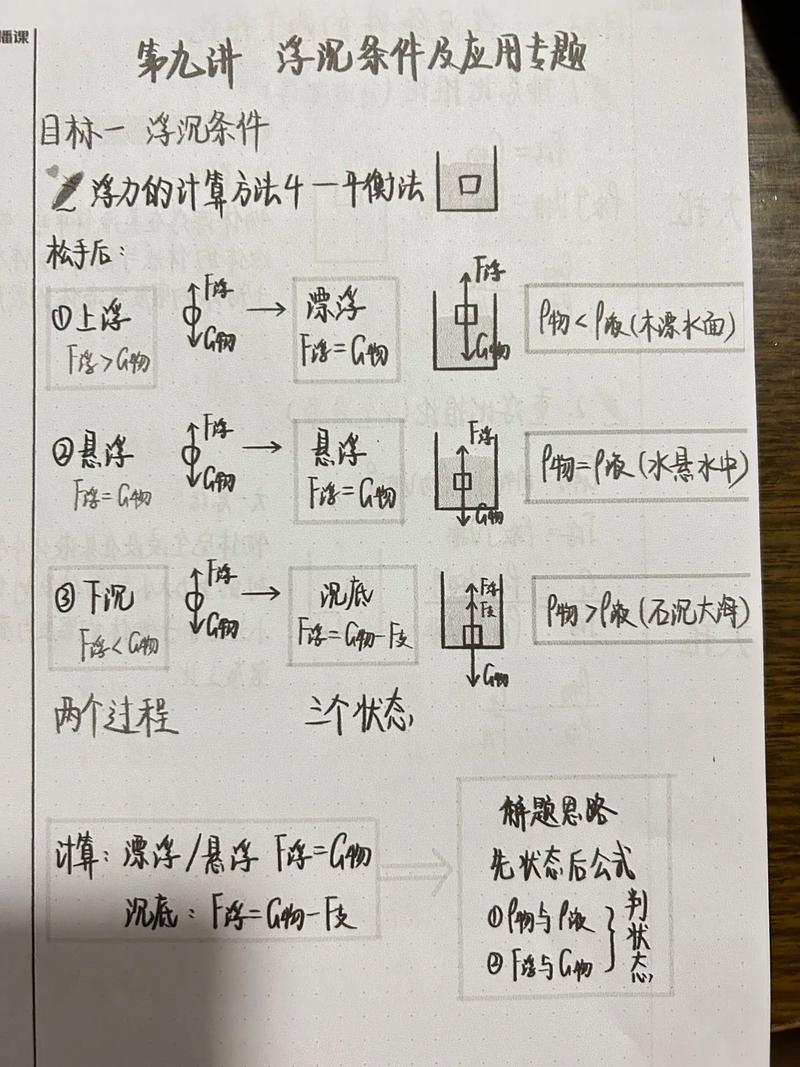 播课
第九讲 浮沉条件及应用专题
目标一 浮沉条件
浮力的计算方法4 — 平衡法
松手后:
①上浮 F浮 G物 → 漂浮 F浮 G物 ρ物<ρ液(木漂水面)
F浮>G物 F浮=G物
②悬浮 F浮 G物 → 悬浮 F浮 G物 ρ物=ρ液(水悬水中)
F浮=G物 F浮=G物
③下沉 F浮 G物 → 沉底 F浮 F支 G物 ρ物>ρ液(石沉大海)
F浮<G物 F浮=G物-F支
两个过程 三个状态
计算: 漂浮/悬浮 F浮=G物
沉底: F浮=G物-F支
解题思路
先状态后公式
①ρ物与ρ液
②F浮与G物
判状态